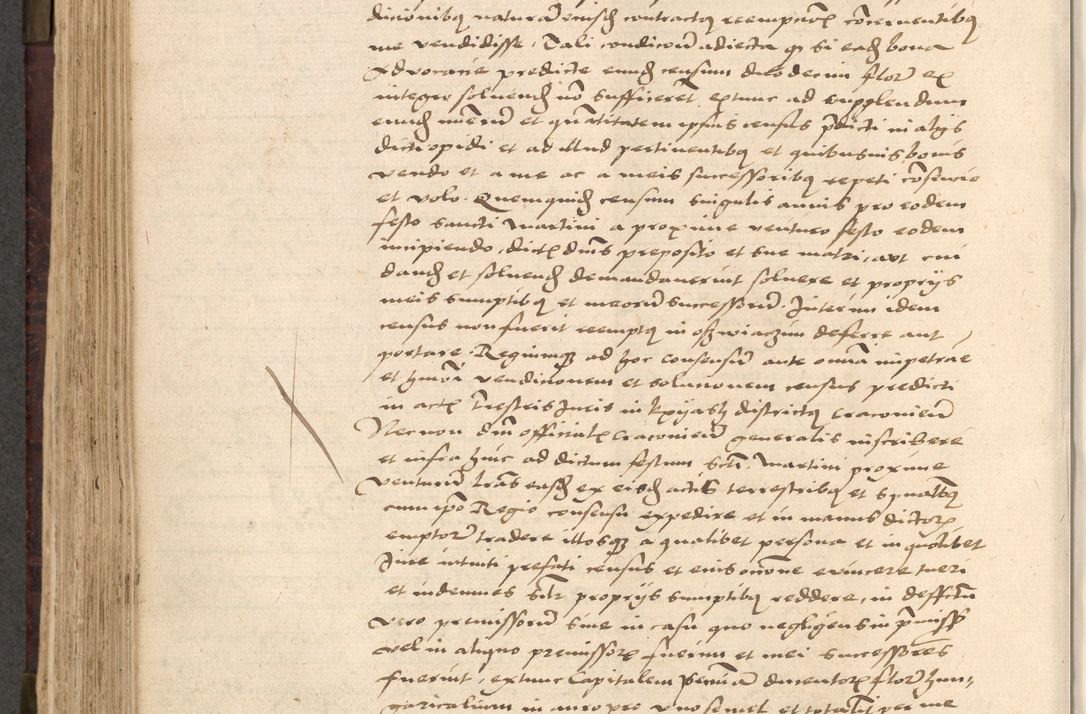 dicionibus naturam eiusdem contractus reempcionis concernentibus
me vendidisse. Tali condicione adiecta q si eadem bona
advocacie predicte eundem censum duodecim flor ex
integro solvendum non sufficerent extunc ad supplendum
eundem numerum et quantitatem ipsius census predicti in aliis
dicti opidi et ad illud pertinentibus et quibusvis bonis
vendo et a me ac a meis successoribus repeti consencio
et volo. Quemquidem censum singulis annis pro eodem
festo sancti Martini a proxime venturo festo eodem
incipiendo, dictis dominis preposito et sue matri, aut cui
dandum et solvendum demandaverint solvere et propriis
meis sumptibus et meorum successorum. Interim idem
census non fuerit reemptus in Oszwiaczim deferre aut
portare. Regiumque ad hoc consensum ante omnia impetrare
et huiusmodi vendicionem et solucionem census predicti
in actis terrestris Iuris in Kxyasz districtus Cracoviensis
Necnon domini officialis Cracoviensis generalis inscribere
et infra hinc ad dictum festum sancti Martini proxime
venturum literas easdem ex eisdem actis terrestribus et spiritualibus
cum ipso Regio consensu expedire et in manus dictorum
emptorum tradere illosque a qualibet persona et in quolibet
Iure intuiti prefati census et eius omnione evincere tueri
et indemnes semper propriis sumptibus reddere, in deffectum
vero premissorum sive in casu quo negligens in premissis
vel in aliquo premissorum fuerim et mei successores
fuerint, extunc Capitalem summam ducentorum flor hun-
garicalium in auro pro uno semel et totaliter per me